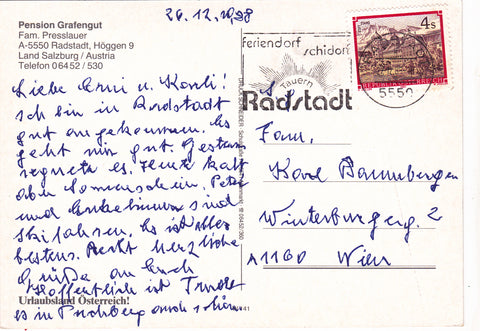 Pension Grafengut
Fam. Presslauer
A-5550 Radstadt, Höggen 9
Land Salzburg / Austria
Telefon 06452 / 530
26.12.1988
4s
REPUBLIK ÖSTERREICH
feriendorf
schidorf
Tauern
Radstadt
5550
Liebe Erni u. Karli!
Ich bin in Radstadt
gut angekommen. Es
geht mir gut. Gestern
regnete es, heute kalt
aber Sonnenschein. Peter
und Enkelinnen sind
skifahren. Es ist alles
bestens. Recht herzliche
Grüße an Euch
Hoffentlich ist
es in Puchberg auch schön.
Urlaubsland Österreich!
Fam.
Karl
Winterburgerg. 2
A1160 Wien